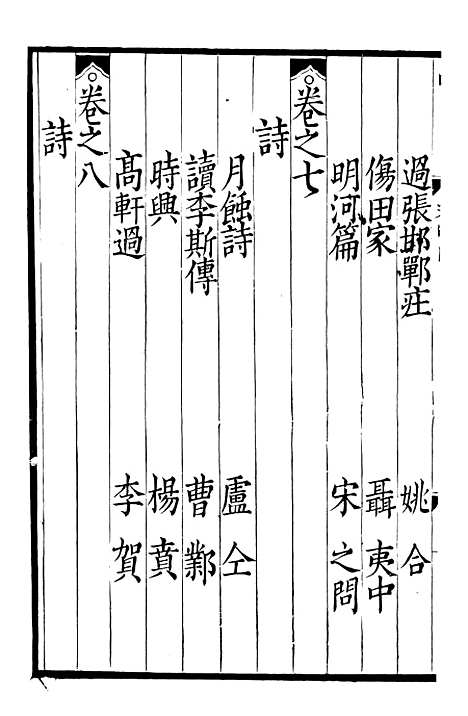 過張邯鄲莊 姚合
傷田家 聶夷中
明河篇 宋之問
卷之七
詩
月蝕詩 盧仝
讀李斯傳 曹鄴
時興 楊賁
高軒過 李賀
卷之八
詩